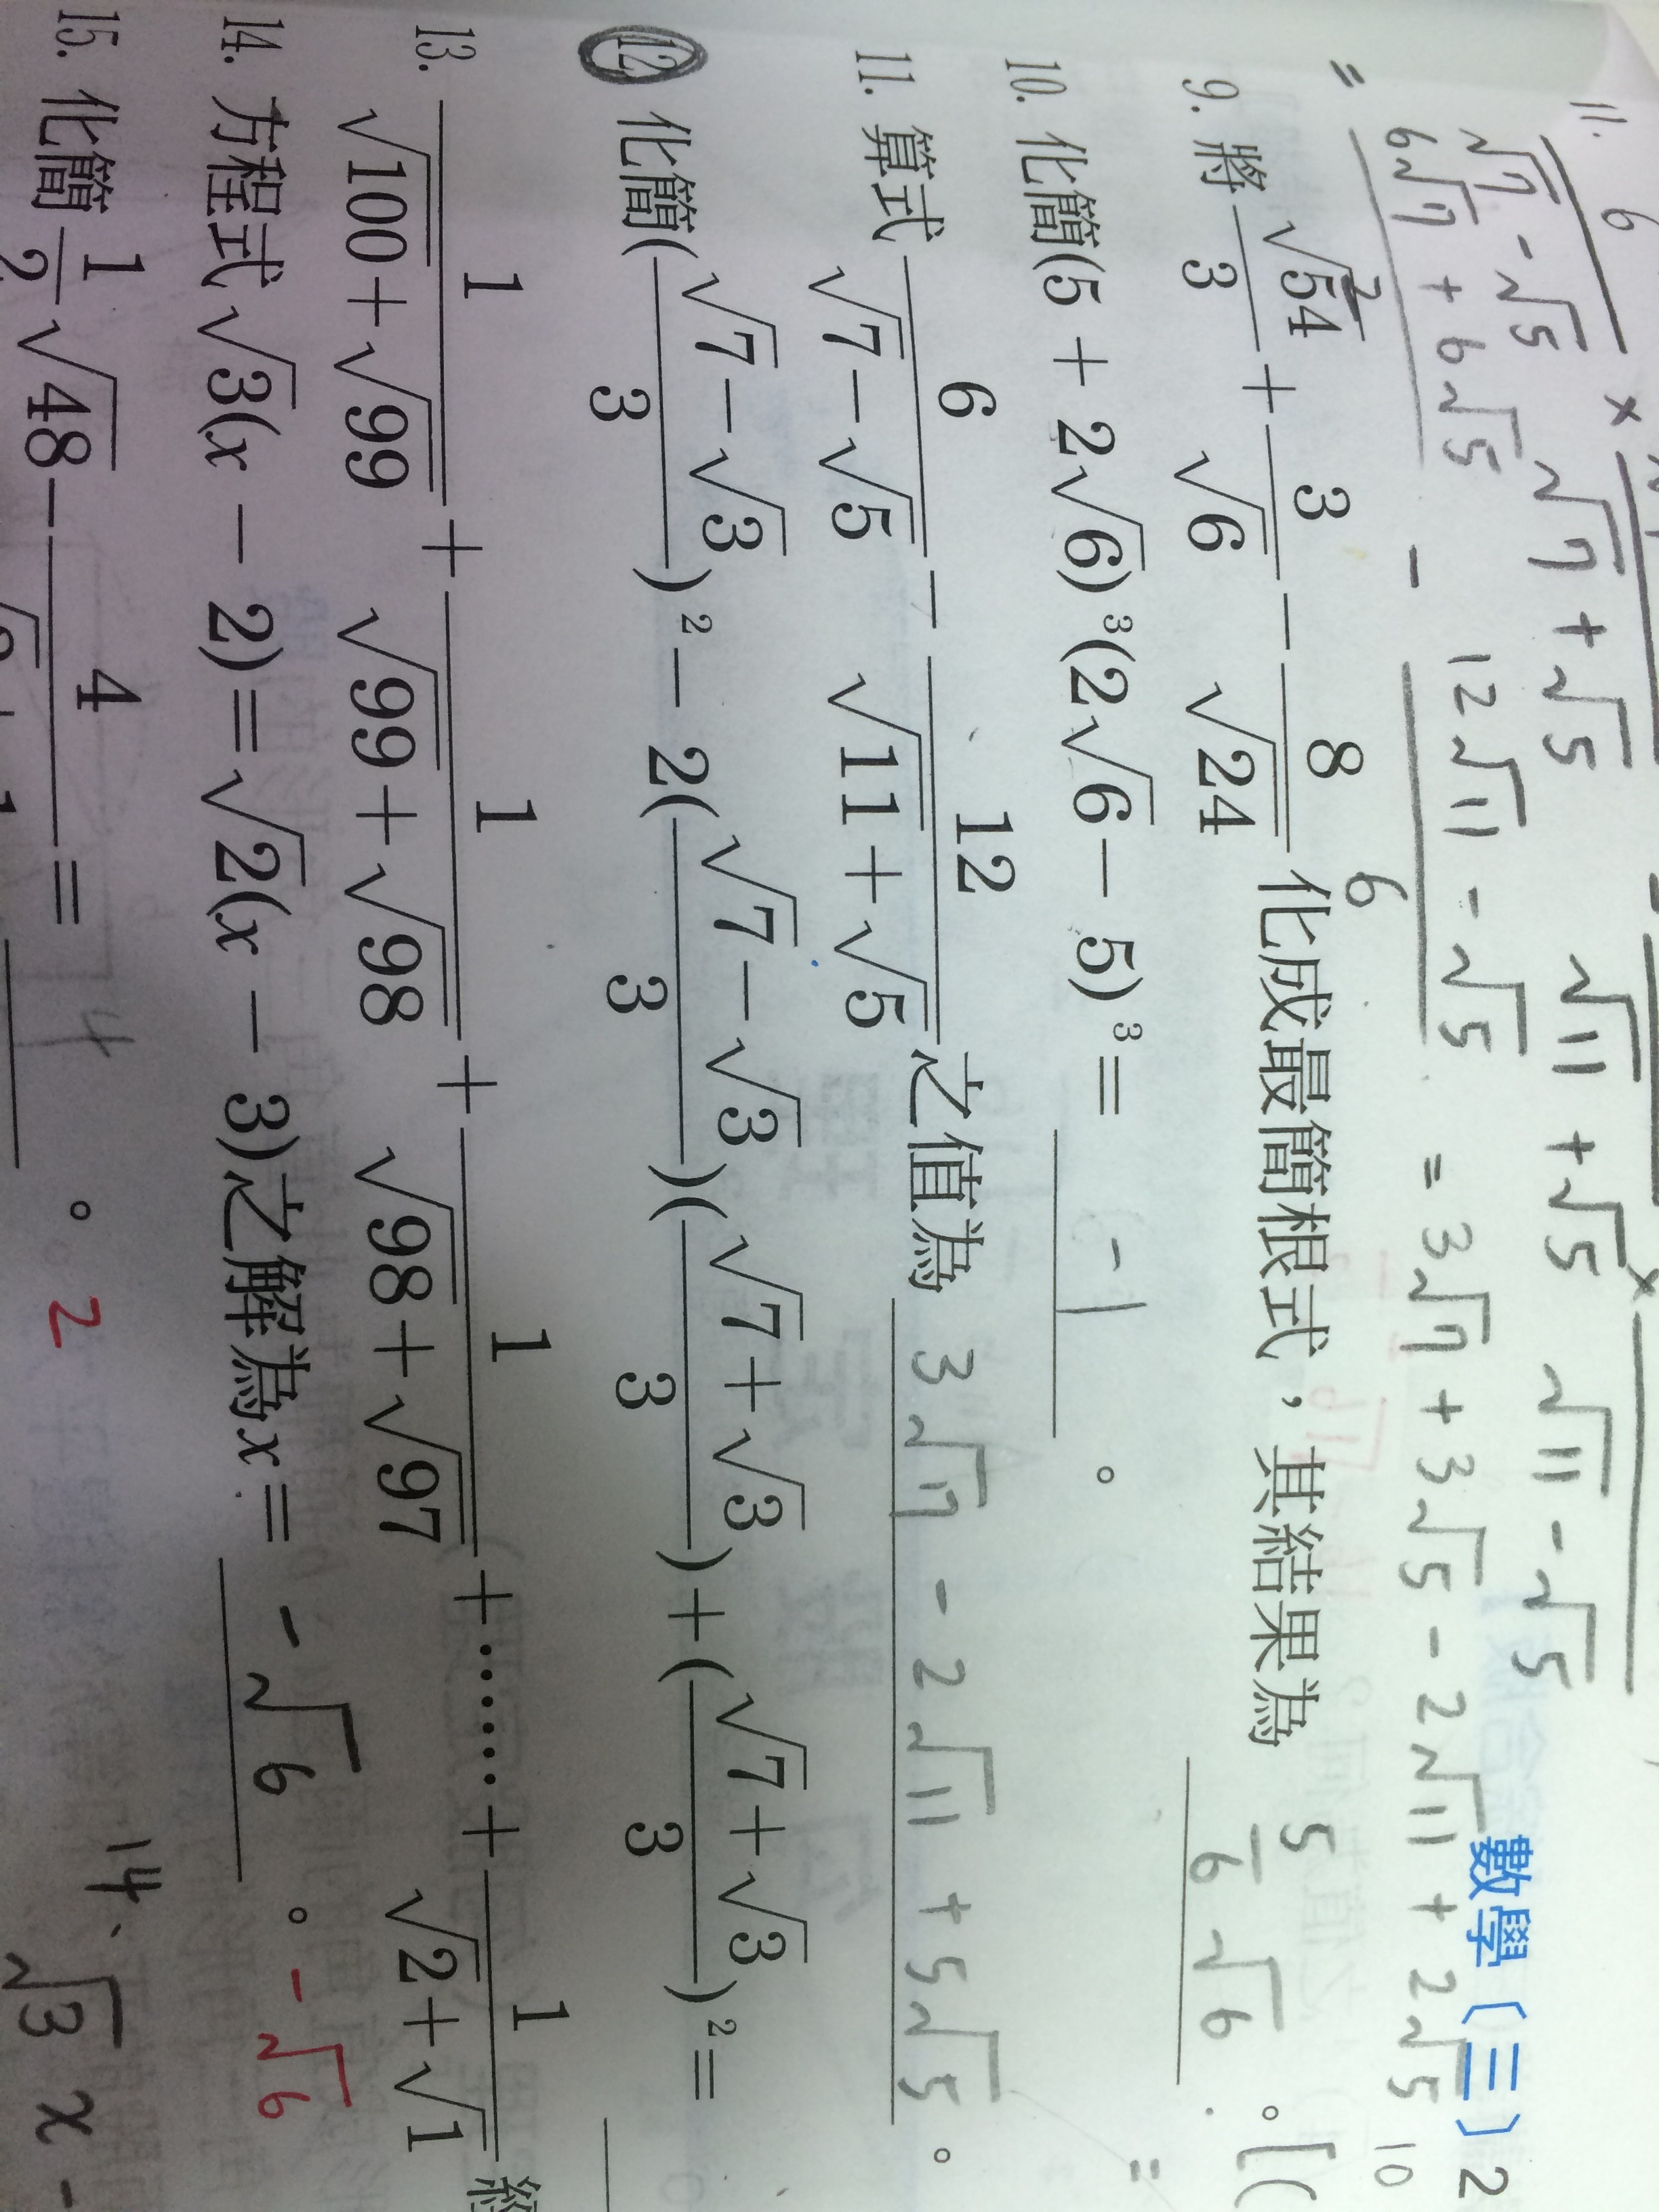 數學〔三〕2
11. 6/(√7-√5) × (√7+√5) - √11+√5 × √11-√5
= (6√7+6√5) - (12√11-√5)/6 = 3√7+3√5-2√11+2√5
9. 將 √54/3 + 3/√6 - 8/√24 化成最簡根式，其結果為 5/6 √6 。
10. 化簡(5 + 2√6)³(2√6 - 5)³ = -1 。
11. 算式 6/(√7-√5) - 12/(√11+√5) 之值為 3√7 - 2√11 + 5√5 。
12. 化簡((√7-√3)/3)² - 2((√7-√3)/3)((√7+√3)/3) + ((√7+√3)/3)² =
13. 1/(√100+√99) + 1/(√99+√98) + 1/(√98+√97) + …… + 1/(√2+√1)
14. 方程式 √3(x - 2) = √2(x - 3)之解為x = -√6 。 -√6
15. 化簡 1/2 √48 - 4/ = 。 2
14、√3 x -